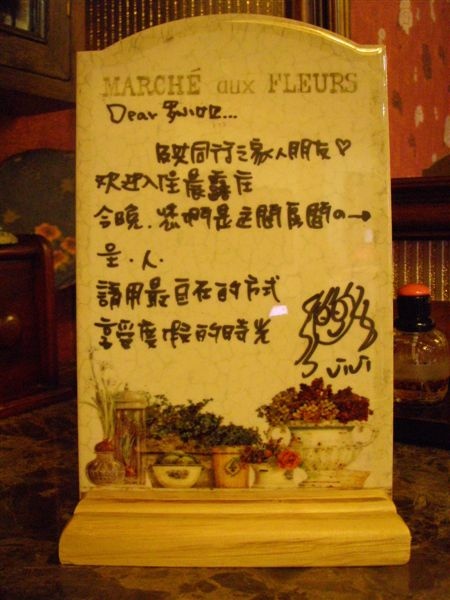 MARCHÉ aux FLEURS
Dear
及其同行之家人朋友♡
欢迎入住晨露庄
今晚，您們是這間房間の→
主．人．
請用最自在的方式
享受度假的時光
ViVi